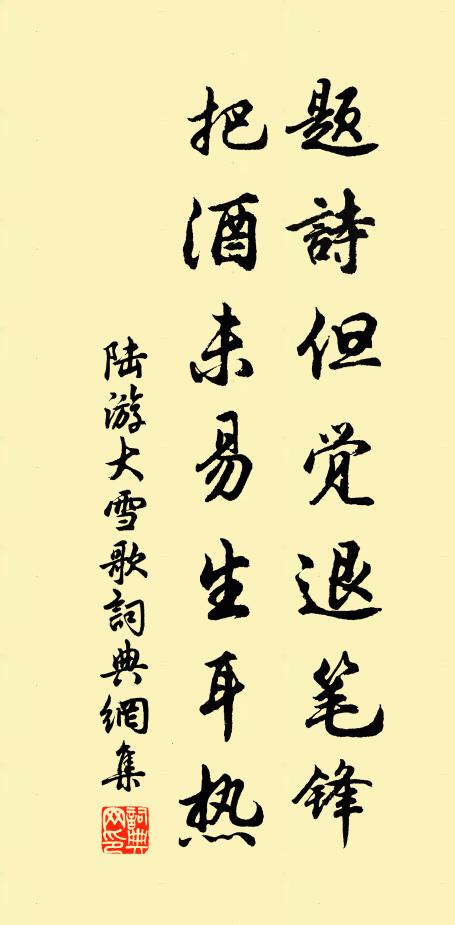 题詩但觉退笔锋
把酒未易生耳热
陆游大雪歌詞典網集
詞典网印